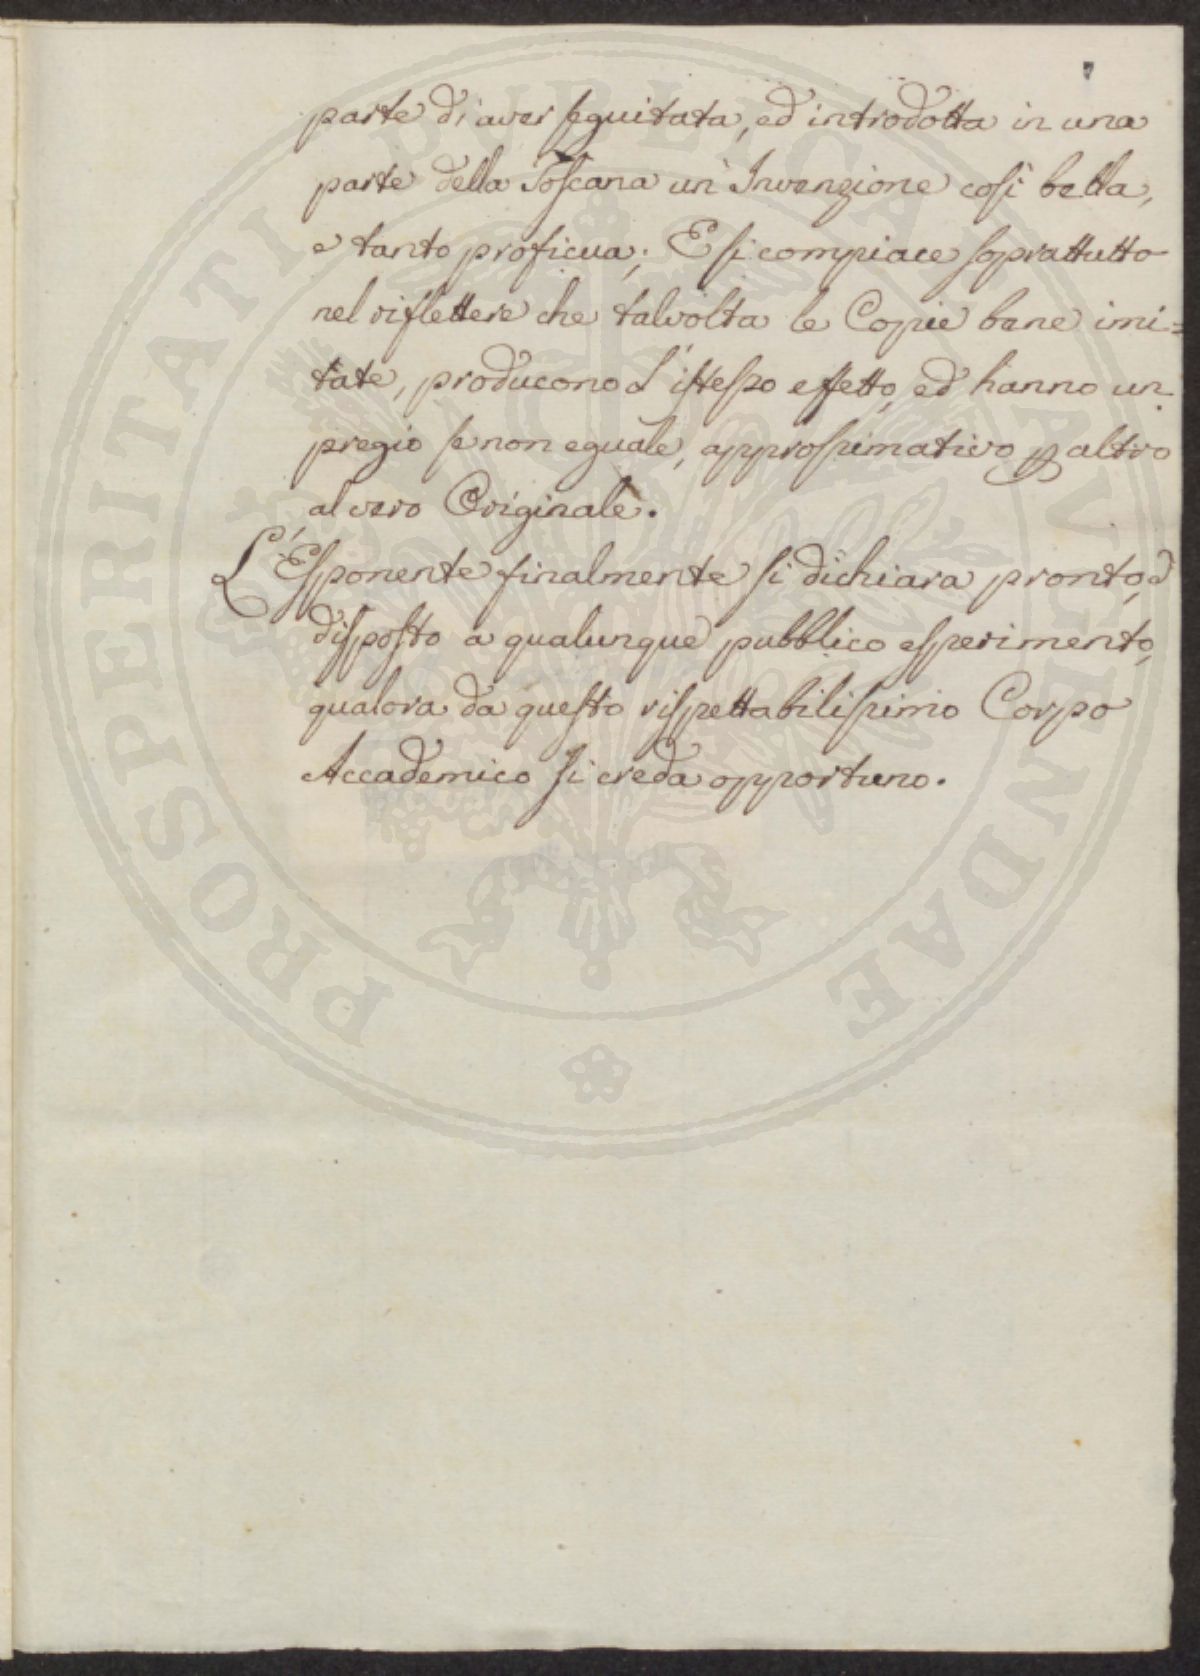 7
parte di aver seguitata, ed introdotta in una
parte della Toscana un' Invenzione così bella,
e tanto proficua; E si compiace soprattutto
nel riflettere che talvolta le Copie bene imi=
tate, producono l'istesso effetto, ed hanno un
pregio se non eguale, approssimativo p altro
al vero Originale.
L'Esponente finalmente si dichiara pronto, e
disposto a qualunque pubblico esperimento,
qualora da questo rispettabilissimo Corpo
Accademico si creda opportuno.
PROSPERITATI PUBLICAE AUGENDAE